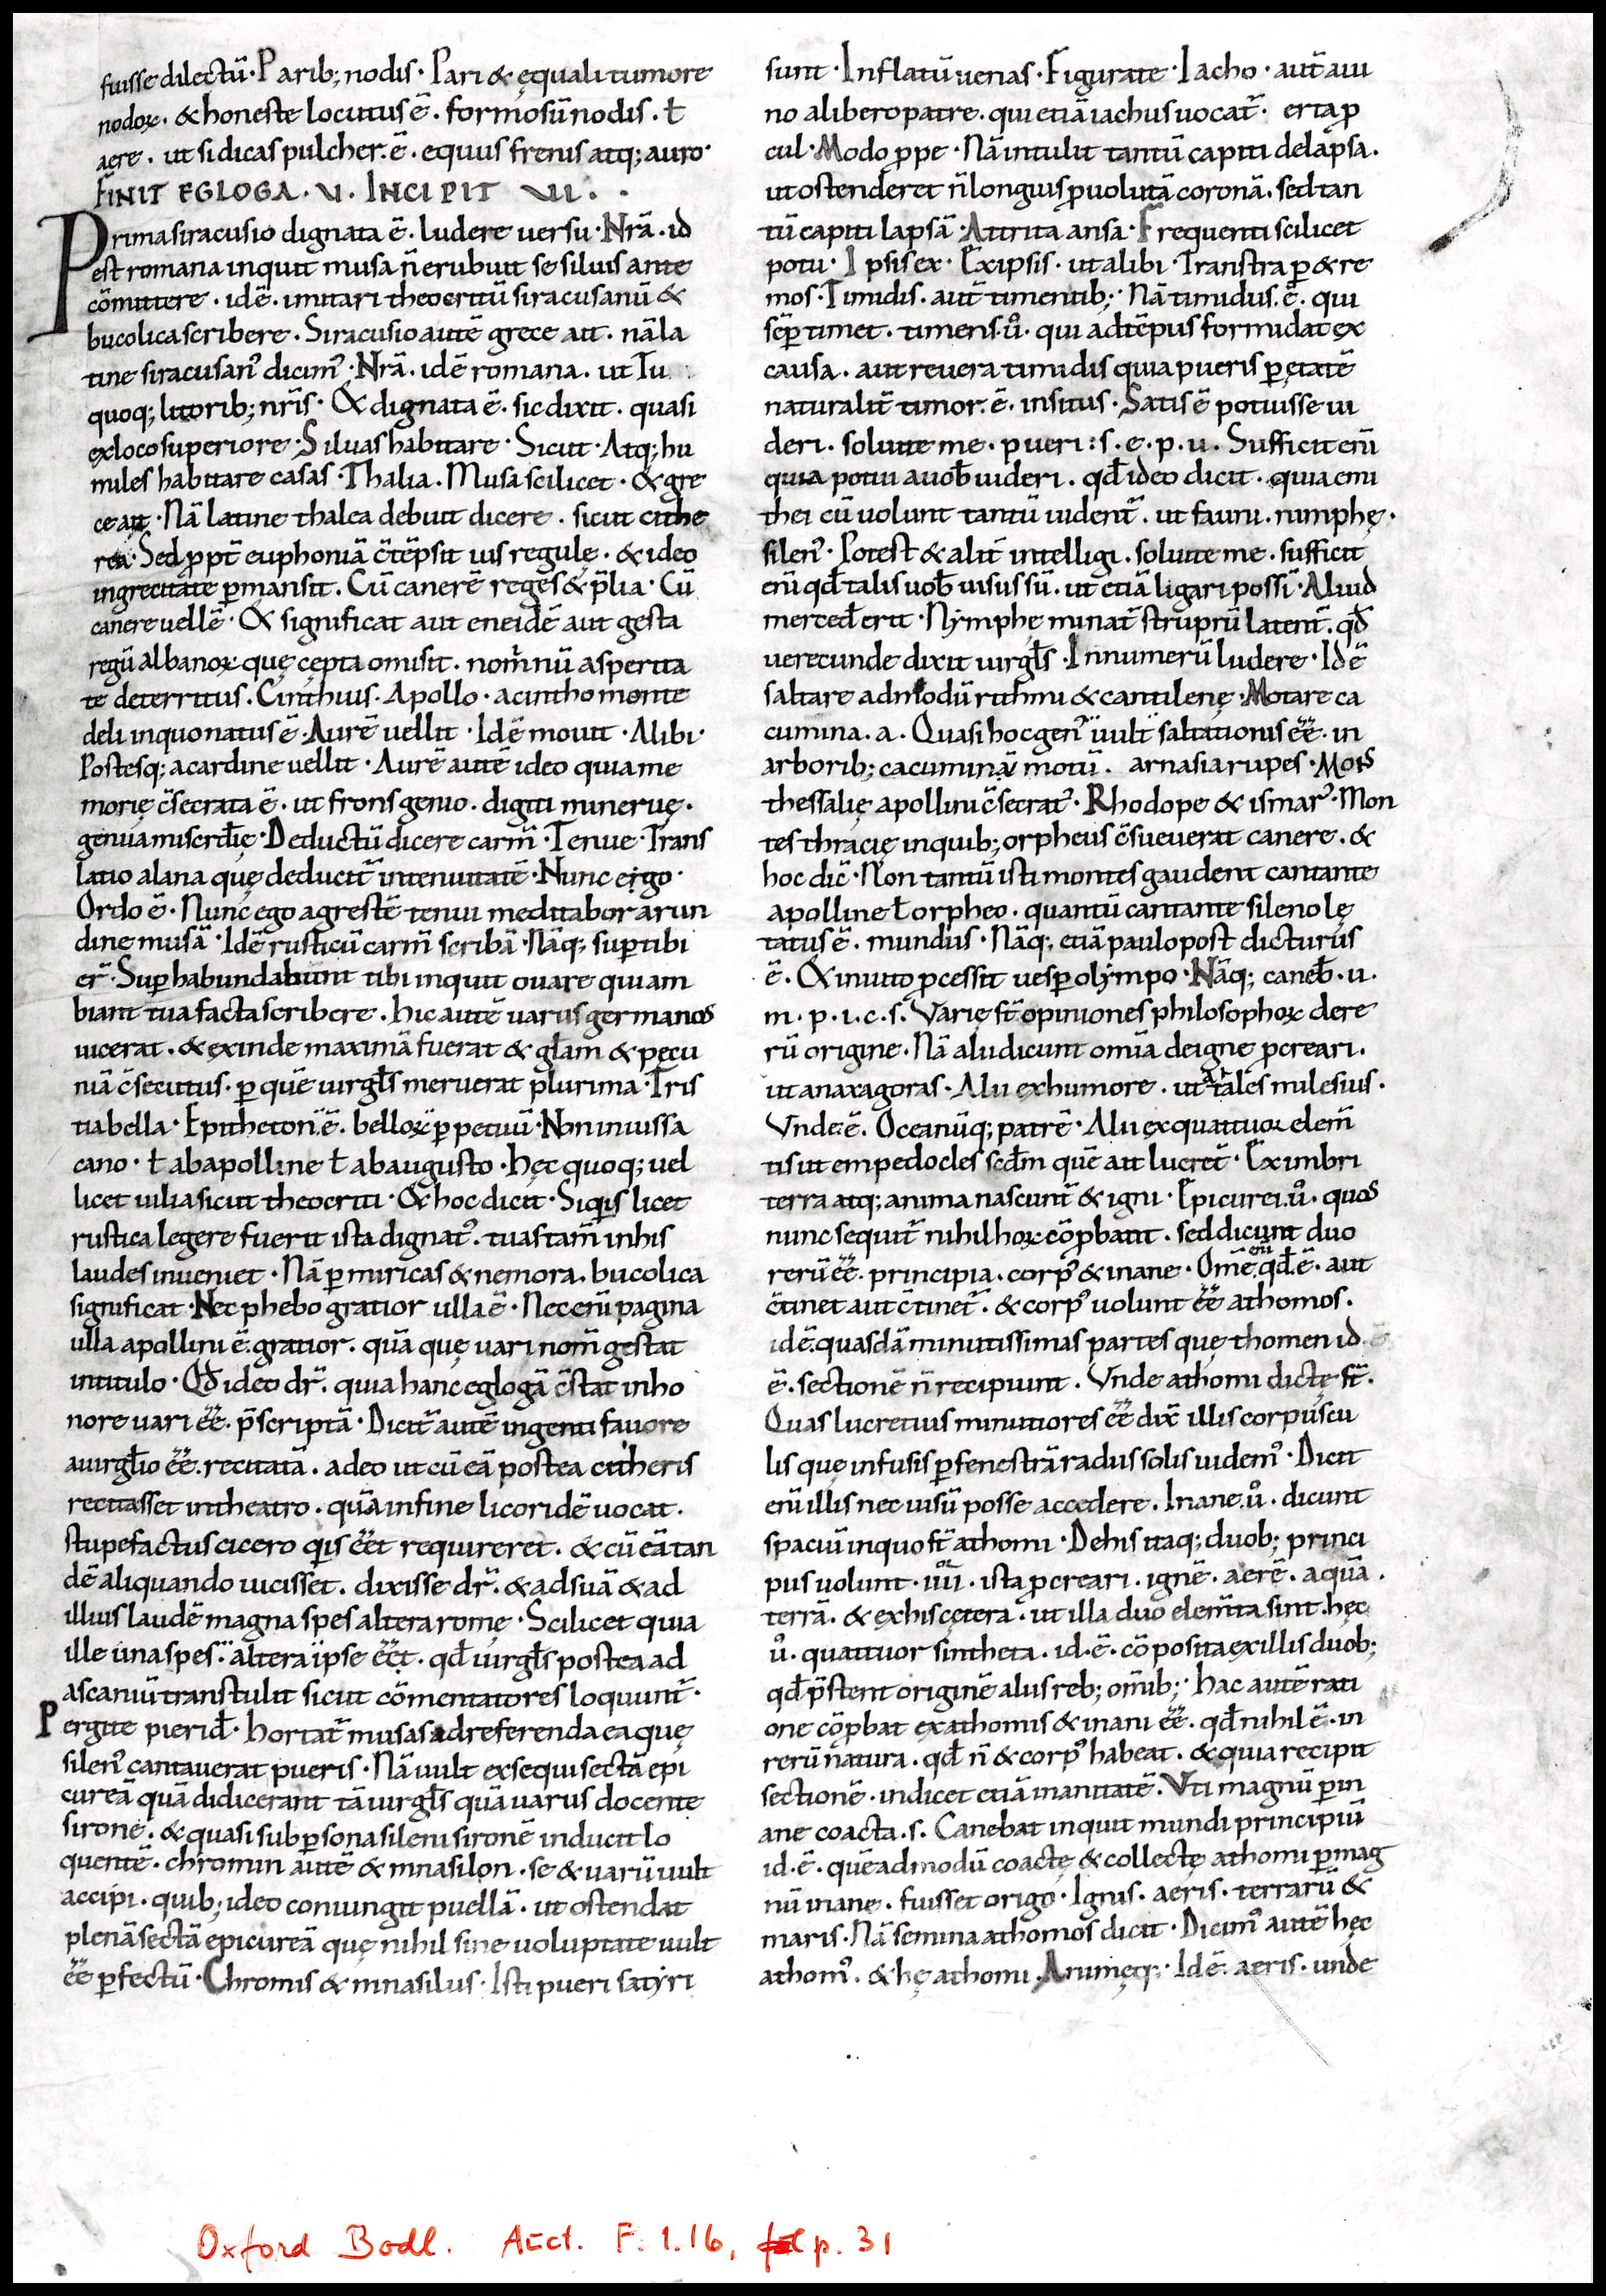 fuisse dilectū · Parib; nodis · Pari & ęquali tumore
nodoꝝ . & honeste locutus ē . formosū nodis . ł
aere . ut si dicas pulcher . ē . equus frenis atq; auro ·
FINIT EGLOGA . V . INCIPIT VII . .
Prima siracusio dignata ē . ludere uersu · Nrā . id
est romana inquit musa n̄ erubuit se siluis ante
cōmittere . idē . imitari theocritū siracusanū &
bucolica scribere . Siracusio autē grece ait . nā la
tine siracusan᾿ dicim᾿ · Nrā . idē romana . ut Tu
quoq; litorib; nr̄is · & dignata ē . sic dixit . quasi
ex loco superiore · Siluas habitare · Sicut · Atq; hu
miles habitare casas · Thalia . Musa scilicet · & gre
ce ait · Nā latine thalea debuit dicere . sicut cithe
rea · Sed ꝓpt̄ euphoniā c̄tēpsit uis regulę . & ideo
in grecitate ꝑmansit . Cū canerē reges & p̄lia · Cū
canere uellē · & significat aut eneidē aut gesta
regū albanoꝝ quę cępta omisit . nom̄nū asperita
te deterritus . Cinthius · Apollo · a cintho monte
deli in quo natus ē · Aurē uellit · Idē mouit · Alibi ·
Postesq; a cardine uellit · Aurē autē ideo quia me
morię c̄secrata ē . ut frons genio . digiti mineruę .
genua miscrd̄ię · Deductū dicere carm̄ · Tenue · Trans
latio a lana quę deducit̄ in tenuitatē · Nunc ergo ·
Ordo ē · Nunc ego agrestē tenui meditabor arun
dine musā · Idē rusticū carm̄ scribā · Nāq; suꝑ tibi
er̄ · Suꝑ habundabunt tibi inquit ouare qui am
biant tua facta scribere . hic autē uarus germanos
uicerat . & exinde maximā fuerat & gl̄am & pecu
niā c̄secutus · ꝑ quē uirgl̄s meruerat plurima · Tris
tia bella · Epitheton . ē . belloꝝ ꝑpetuū · Non iniussa
cano · ł ab apolline ł ab augusto · hęc quoq; uel
licet uilia sicut theocriti · & hoc dicit · Siq̇s licet
rustica legere fuerit ista dignat᾿ . tuas tam̄ in his
laudes inueniet · Nā ꝑ miricas & nemora . bucolica
significat · Nec phebo gratior ulla ē · Nec eni̅ pagina
ulla apollini ē . gratior . quā quę uari nom̄ gestat
in titulo · Qd̄ ideo dr̄ . quia hanc eglogā c̄stat in ho
nore uari ēē . p̄scriptā · Dicit̄ autē ingenti fauore
a uirgl̄io ēē . recitatā . adeo ut cū eā postea citheris
recitasset in theatro . quā in fine licoridē uocat .
stupefactus cicero q̇s ēēt requireret . & cū eā tan
dē aliquando uicisset . dixisse dr̄ . & ad suā & ad
illius laudē magna spes altera romę · Scilicet quia
ille una spes . altera ipse ēēt . qd̄ uirgl̄s postea ad
ascaniū transtulit sicut cōmentatores loquunt̄ ·
Pergite pierid̄ · hortat̄ musas ad referenda ea quę
silen᾿ cantauerat pueris · Nā uult exsequi sectā epi
cureā quā didicerant tā uirgl̄s quā uarus docente
sironē . & quasi sub ꝑsona sileni sironē inducit lo
quentē . chromin autē & mnasilon . se & uarū uult
accipi . quib; ideo coniungit puellā . ut ostendat
plenā sectā epicureā quę nihil sine uoluptate uult
ēē ꝑfectū · Chromis & mnasilus · Isti pueri satyri
sunt · Inflatū uenas · Figurate · Iacho · aut̄ a ui
no a libero patre . qui etiā iachus uocat̄ · erta ꝓ
cul · Modo ꝓpe · Nā intulit tantū capiti delapsa .
ut ostenderet n̄ longius ꝓuolutā coronā . sed tan
tū capiti lapsā · Attrita ansa · Frequenti scilicet
potu · Ipsis ex · Ex ipsis · ut alibi · Transtra ꝑ & re
mos · Timidis . aut̄ timentib; · Nā timidus . ē . qui
sēꝑ timet . timens . ů . qui ad tēpus formidat ex
causa . aut reuera timidis quia pueris ꝑ ętatē
naturalit̄ timor . ē . insitus · Satis ē potuisse ui
deri . soluite me . pueri : s . e . p . u . Sufficit eni̅
quia potui a uob̄ uideri . qd̄ ideo dicit . quia emi
thei cū uolunt tantū uident̄ . ut fauni . nimphę .
silen᾿ · Potest & alit̄ intelligi . soluite me . sufficit
eni̅ qd̄ talis uob̄ uisus sū . ut etiā ligari possi̅ · Aliud
merced̄ erit · Nymphę minat̄ struprū latent̄ . qd̄
uerecunde dixit uirgl̄s · In numerū ludere · Idē
saltare ad modū rithmi & cantilenę · Motare ca
cumina . a . Quasi hoc gen᾿ uult saltationis ēē . in
arborib; cacuminā motū . arnasia rupes · Mons
thessalię apollini c̄secrat᾿ · Rhodope & ismar᾿ · Mon
tes thracię in quib; orpheus c̄sueuerat canere . &
hoc dic̄ · Non tantū isti montes gaudent cantante
apolline ł orpheo . quantū cantante sileno lę
tatus ē . mundus · Nāq; etiā paulo post dicturus
ē . & inuito ꝓcessit uesꝑ olympo · Nāq; caneb̄ . u .
m . p . i . c . s . Varię st̄ opiniones philosophoꝝ de re
rū origine · Nā alii dicunt omi̅a de igne ꝓcreari .
ut anaxagoras · Alii ex humore . ut tales milesius ·
Vnde . ē . Oceanūq; patrē · Alii ex quattuoꝝ elem̄
tis ut empedocles sedm̄ quē ait lucrec̄ · Ex imbri
terra atq; anima nascunt̄ & igni · Epicurei . ů . quos
nunc sequit̄ nihil hoꝝ cōꝓbant . sed dicunt duo
rerū ēē . principia . corp᾿ & inane · Omē eni̅ qd̄ . ē . aut
c̄tinet aut c̄tinet̄ . & corp᾿ uolunt ēē athomos .
idē . quasdā minutissimas partes quę thomen id . ē
ē . sectionē n̄ recipiunt . Vnde athomi dictę st̄ .
Quas lucretius minutiores ēē dix̄ illis corpuscu
lis que infusis ꝑ fenestrā radiis solis uidem᾿ · Dicit
eni̅ illis nec uisū posse accedere . Inane . ů . dicunt
spaciū in quo st̄ athomi · De his itaq; duob; princi
piis uolunt . iiii . ista ꝓcreari . ignē . aerē . aquā .
terrā . & ex his cętera . ut illa duo elem̄ta sint . hęc
ů . quattuor sintheta . id . ē . cōposita ex illis duob;
qd̄ p̄stent originē aliis reb; om̄ib; · hac autē rati
one cōꝓbat ex athomis & inani ēē . qd̄ nihil ē . in
rerū natura . qd̄ n̄ & corp᾿ habeat . & quia recipit
sectionē . indicet etiā inanitatē . Vti magnū ꝑ in
ane coacta . s . Canebat inquit mundi principiū
id . ē . quēadmodū coactę & collectę athomi ꝑ mag
nū inane . fuisset origo · Ignis . aeris . terrarū &
maris · Nā semina athomos dicit · Dicim᾿ autē hęc
athom᾿ . & hę athomi · Animęq; · Idē . aeris . unde
Oxford Bodl. Auct. F. 1.16, p. 31